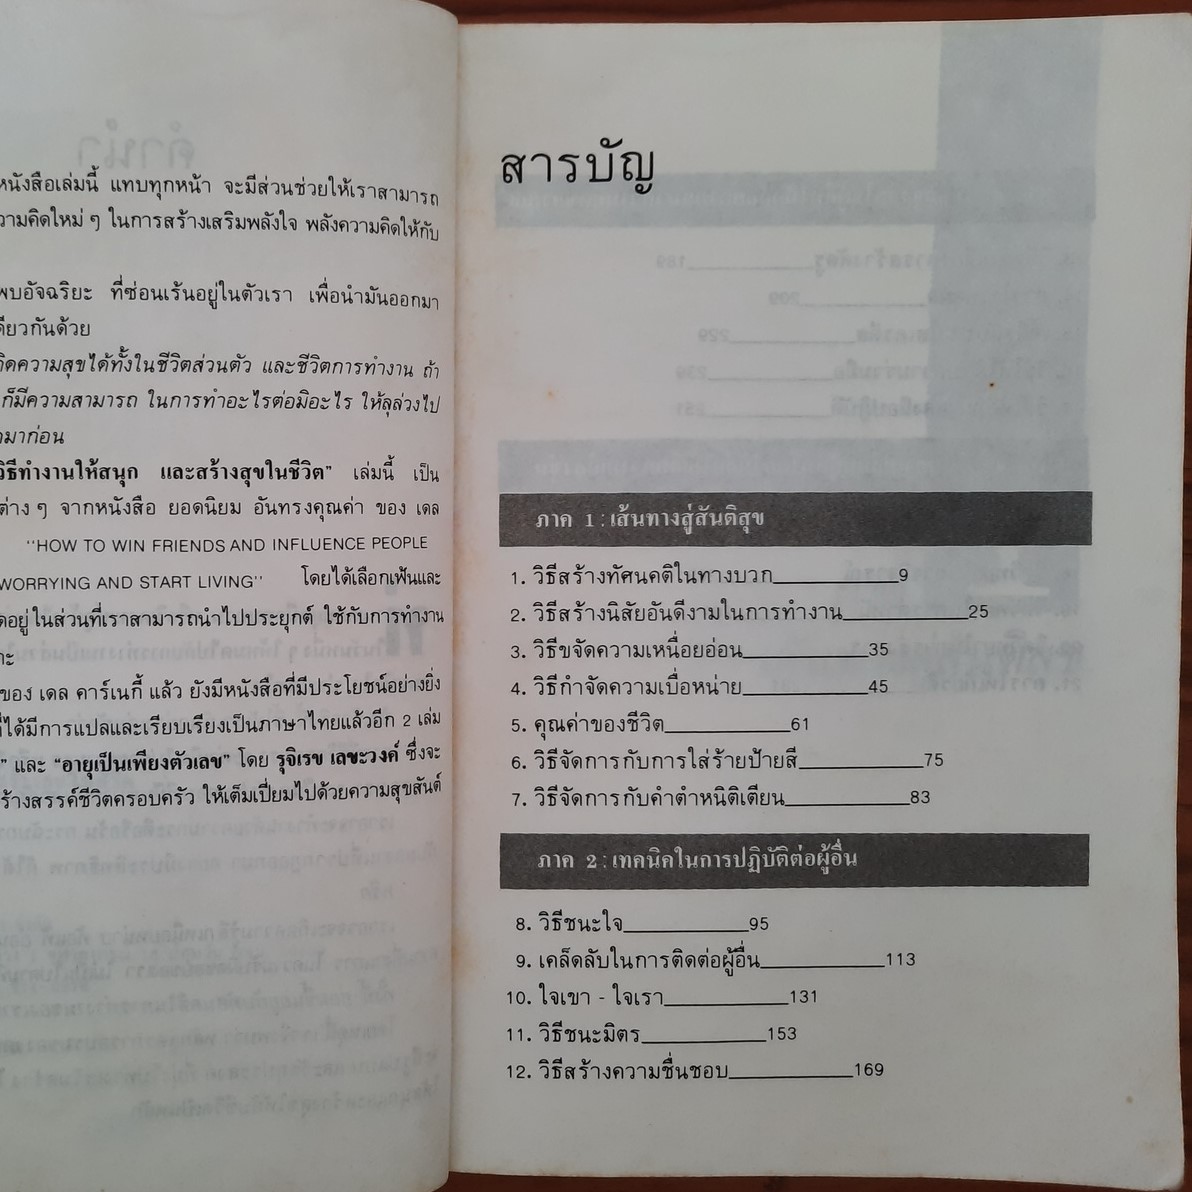 หนังสือเล่มนี้ แทบทุกหน้า จะมีส่วนช่วยให้เราสามารถ
วามคิดใหม่ ๆ ในการสร้างเสริมพลังใจ พลังความคิดให้กับ
พบอัจฉริยะ ที่ซ่อนเร้นอยู่ในตัวเรา เพื่อนำมันออกมา
ดียวกันด้วย
กิดความสุขได้ทั้งในชีวิตส่วนตัว และชีวิตการทำงาน ถ้า
ก็มีความสามารถ ในการทำอะไรต่อมิอะไร ให้ลุล่วงไป
มาก่อน
วิธีทำงานให้สนุก และสร้างสุขในชีวิต" เล่มนี้ เป็น
ต่าง ๆ จากหนังสือ ยอดนิยม อันทรงคุณค่า ของ เดล
"HOW TO WIN FRIENDS AND INFLUENCE PEOPLE
WORRYING AND START LIVING" โดยได้เลือกเฟ้นและ
อยู่ในส่วนที่เราสามารถนำไปประยุกต์ ใช้กับการทำงาน
าะ
ของ เดล คาร์เนกี้ แล้ว ยังมีหนังสือที่มีประโยชน์อย่างยิ่ง
ที่ได้มีการแปลและเรียบเรียงเป็นภาษาไทยแล้วอีก 2 เล่ม
" และ "อายุเป็นเพียงตัวเลข" โดย รุจิเรข เลขะวงค์ ซึ่งจะ
ร้างสรรค์ชีวิตครอบครัว ให้เต็มเปี่ยมไปด้วยความสุขสันต์
สารบัญ
ภาค 1 : เส้นทางสู่สันติสุข
1. วิธีสร้างทัศนคติในทางบวก__________9
2. วิธีสร้างนิสัยอันดีงามในการทำงาน__________25
3. วิธีขจัดความเหนื่อยอ่อน__________35
4. วิธีกำจัดความเบื่อหน่าย__________45
5. คุณค่าของชีวิต__________61
6. วิธีจัดการกับการใส่ร้ายป้ายสี__________75
7. วิธีจัดการกับคำตำหนิติเตียน__________83
ภาค 2 : เทคนิคในการปฏิบัติต่อผู้อื่น
8. วิธีชนะใจ__________95
9. เคล็ดลับในการติดต่อผู้อื่น__________113
10. ใจเขา - ใจเรา__________131
11. วิธีชนะมิตร__________153
12. วิธีสร้างความชื่นชอบ__________169